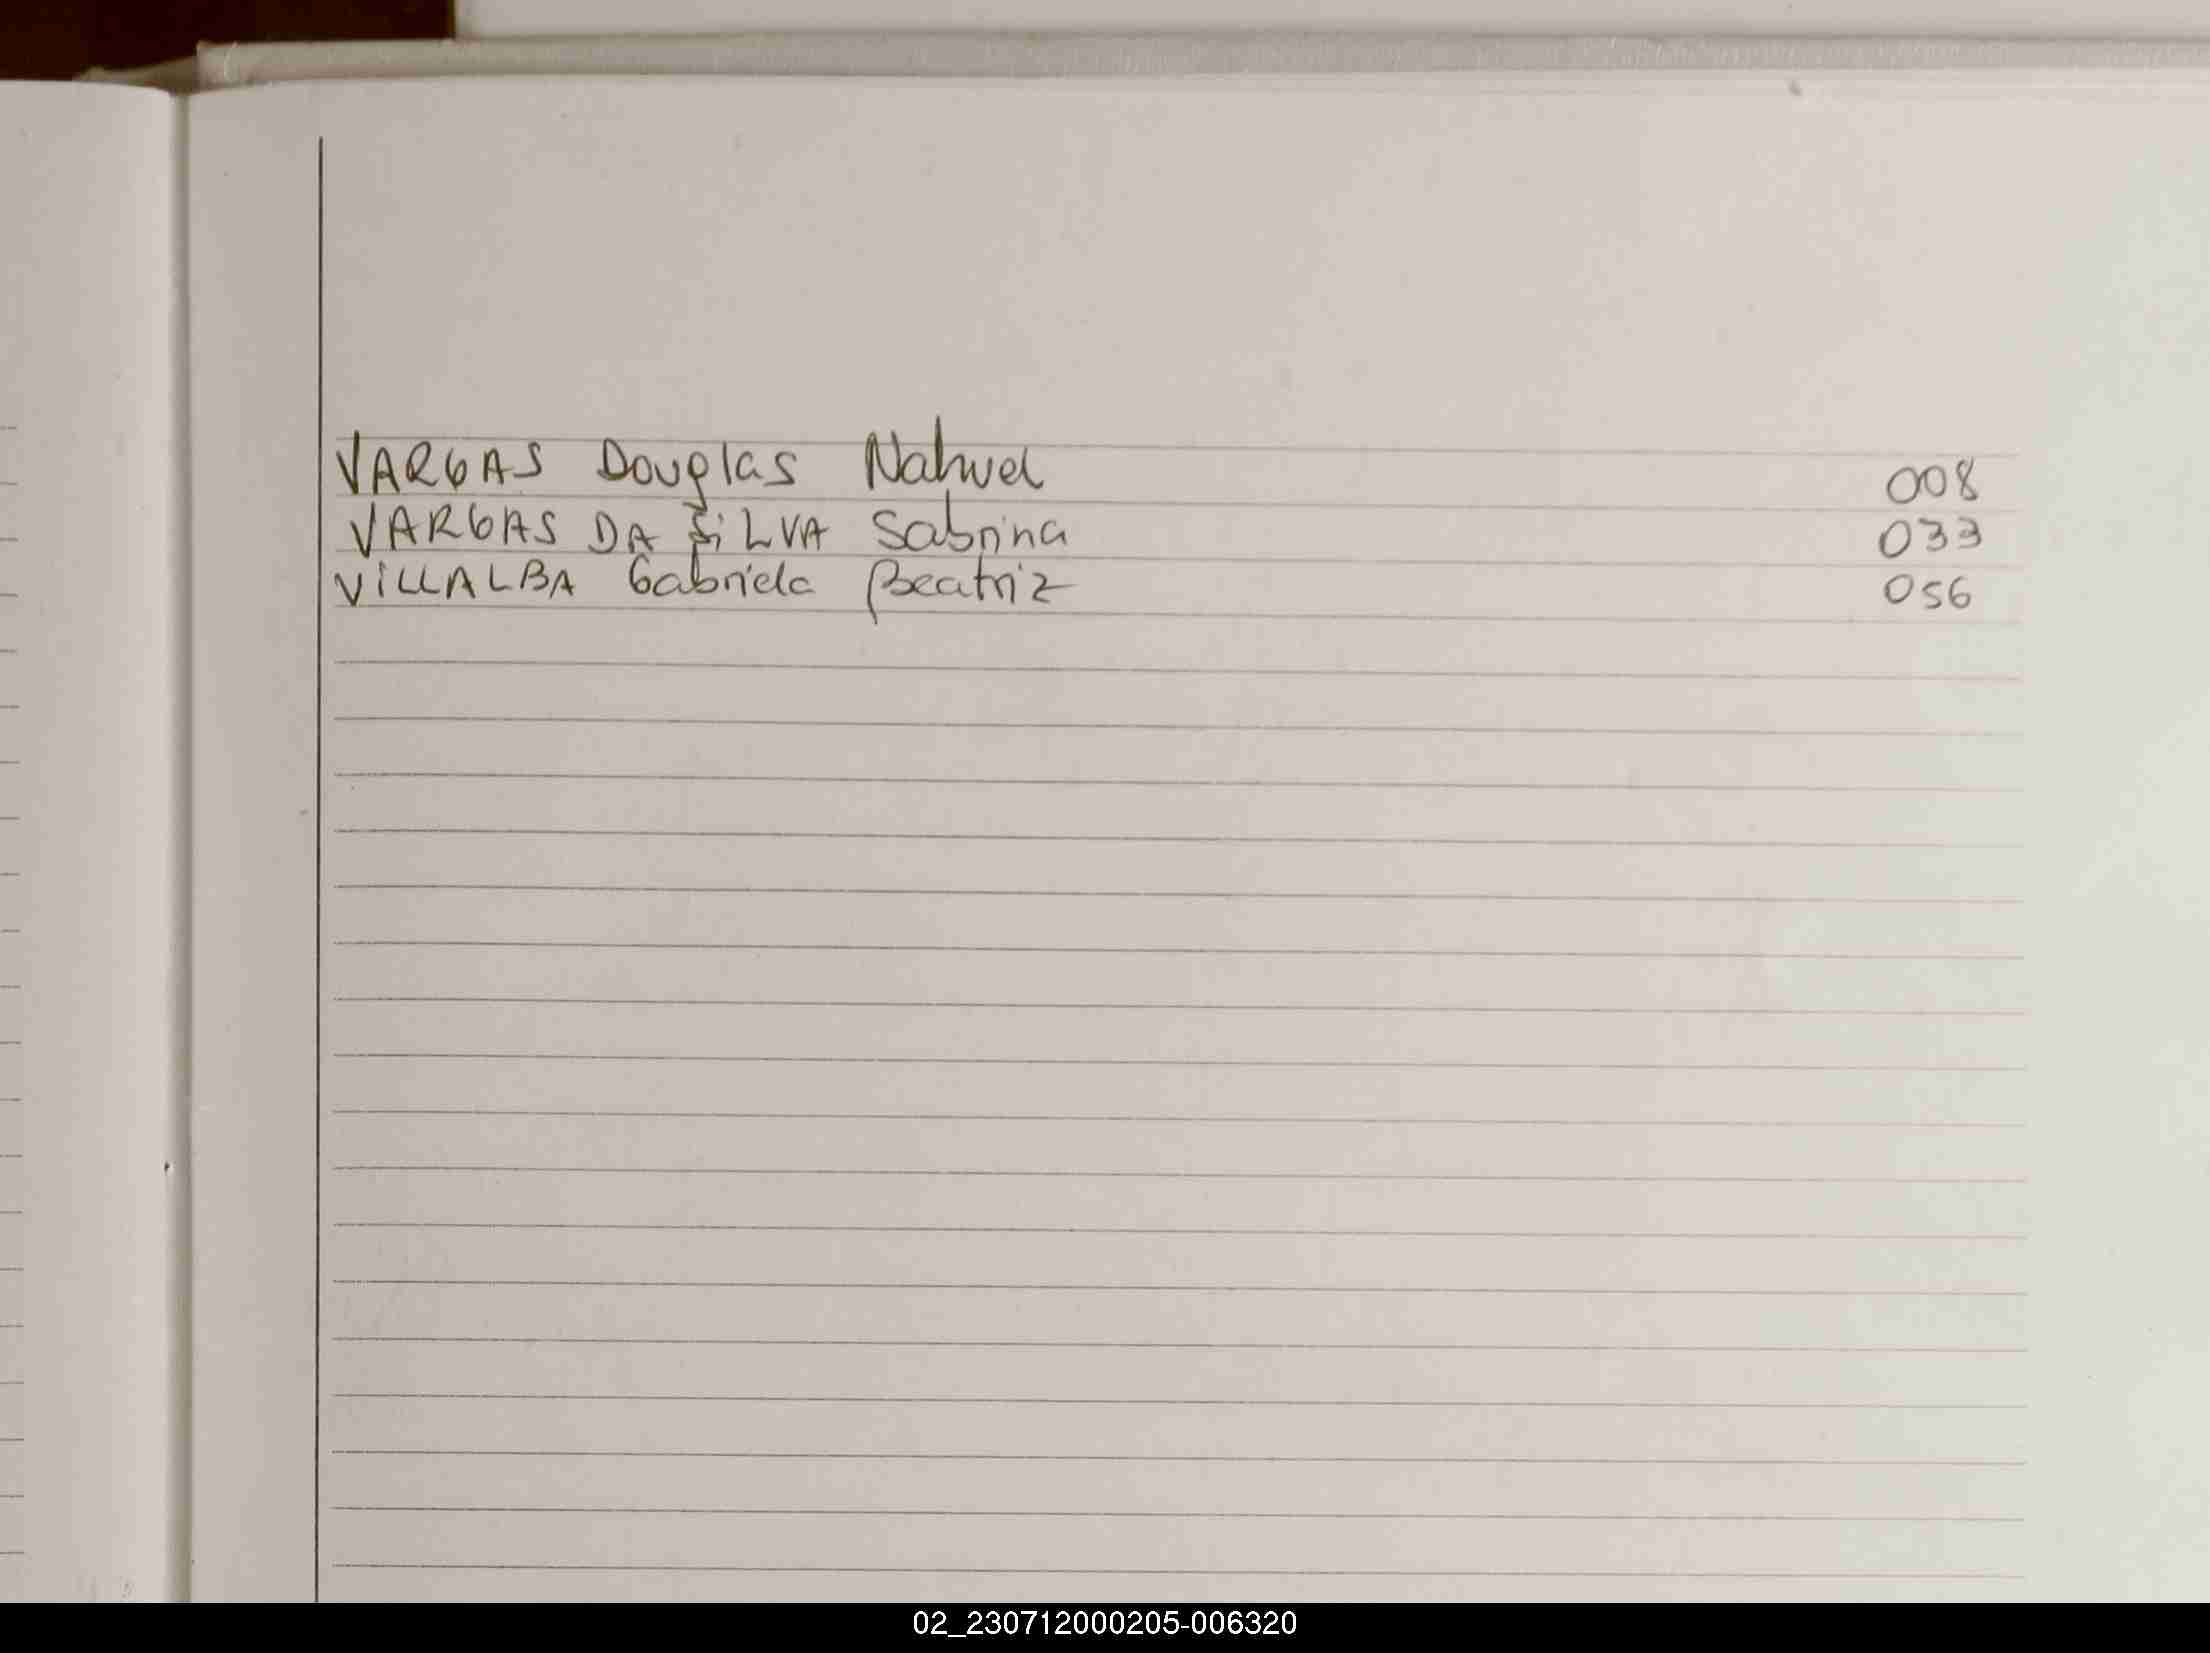 VARGAS Douglas Nahuel 008
VARGAS DA SiLVA Sabrina 033
ViLLALBA Gabriela Beatriz 056
02_230712000205-006320